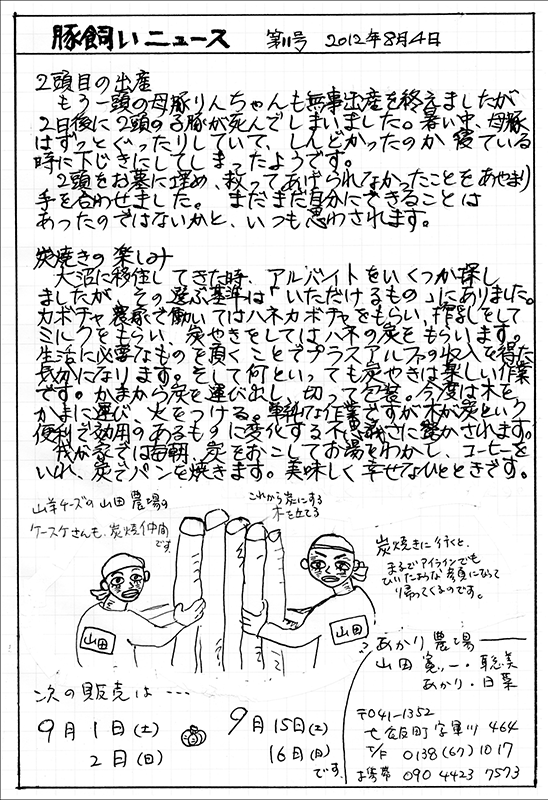 豚飼いニュース 第11号 2012年8月4日
2頭目の出産
もう一頭の母豚りんちゃんも無事出産を終えましたが
2日後に2頭の子豚が死んでしまいました。暑い中、母豚
はずっとぐったりしていて、しんどかったのか寝ている
時に下じきにしてしまったようです。
2頭をお墓に埋め、救ってあげられなかったことをあやまり
手を合わせました。まだまだ自分にできることは
あったのではないかと、いつも思わされます。
炭焼きの楽しみ
大沼に移住してきた時、アルバイトをいくつか探し
ましたが、その選ぶ基準は「いただけるもの」にありました。
カボチャ農家で働いてはハネカボチャをもらい、搾乳をして
ミルクをもらい、炭やきをしてはハネの炭をもらいます。
生活に必要なものを頂くことでプラスアルファの収入を得た
気分になります。そして何といっても炭やきは楽しい作業
です。かまから炭を運びだし、切って包装。今度は木を
かまに運び、火をつける。単純な作業ですが木が炭という
便利で効用のあるものに変化する不思議さに驚かされます。
我が家では毎朝、炭をおこしてお湯をわかし、コーヒーを
いれ、炭でパンを焼きます。美味しく幸せなひとときです。
山羊チーズの山田農場の
ケースケさんも、炭焼仲間
です
これから炭にする
木を立てる
炭焼きに行くと、
まるでアイラインでも
ひいたような顔になって
帰ってくるのです。
山田
山田
次の販売は…
9月1日(土)
2日(日)
9月15日(土)
16日(日)
です
あかり農場
山田 寛一・聡美
あかり・日菜
〒041-1352
七飯町字軍川 464
T/F 0138(67)1017
携帯 090 4423 7573